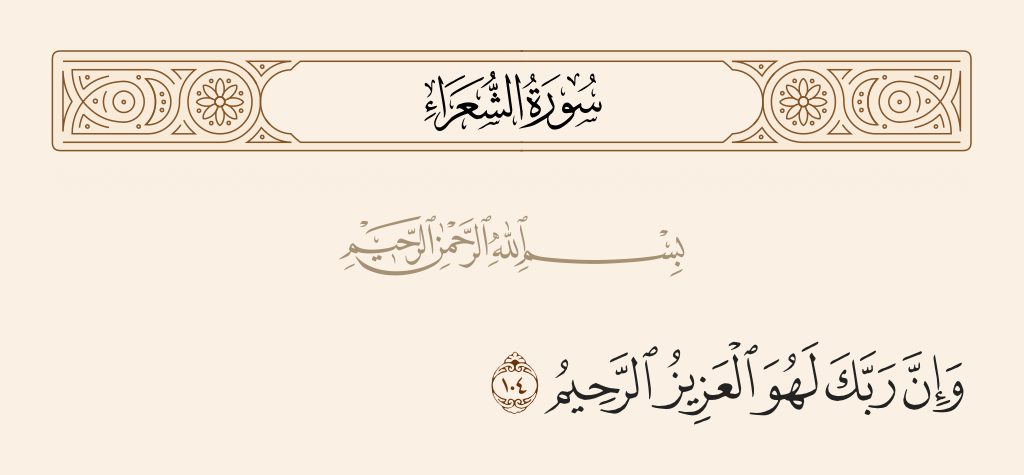 سُورَةُ الشُّعَرَاءِ
بِسْمِ ٱللَّهِ ٱلرَّحْمَٰنِ ٱلرَّحِيمِ
وَإِنَّ رَبَّكَ لَهُوَ ٱلْعَزِيزُ ٱلرَّحِيمُ ١٠٤